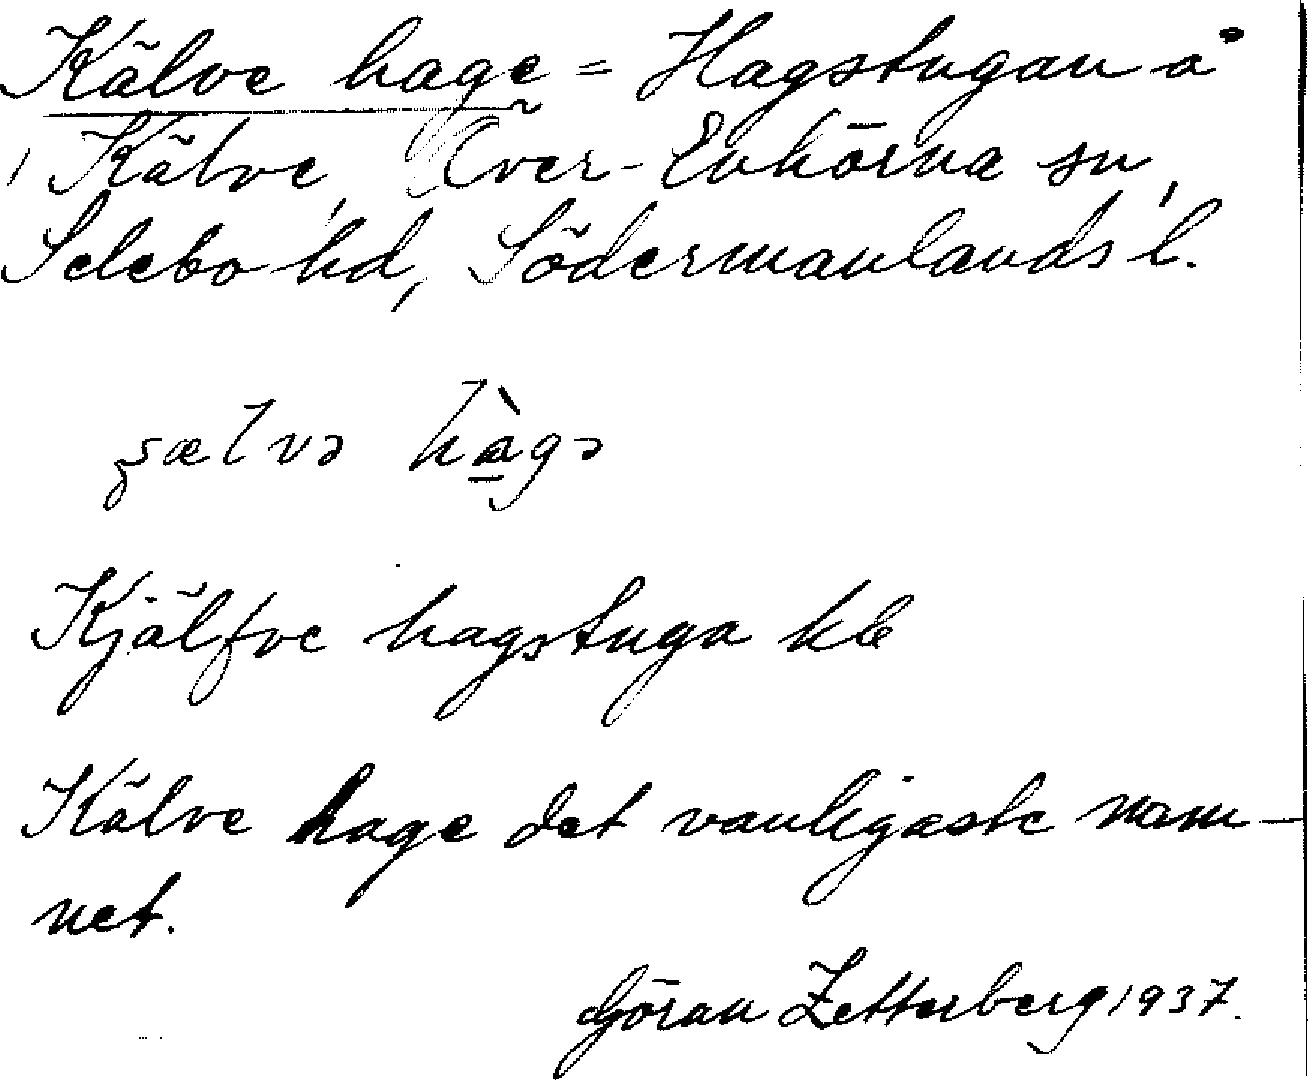 Kälve hage = Hagstugan å
Kälve, Över-Enhörna sn,
Selebo hd, Södermanlands l.
ʂælvə hàgə
Kjälfve hagstuga kb
Kälve hage det vanligaste nam-
net.
Göran Zetterberg 1937.